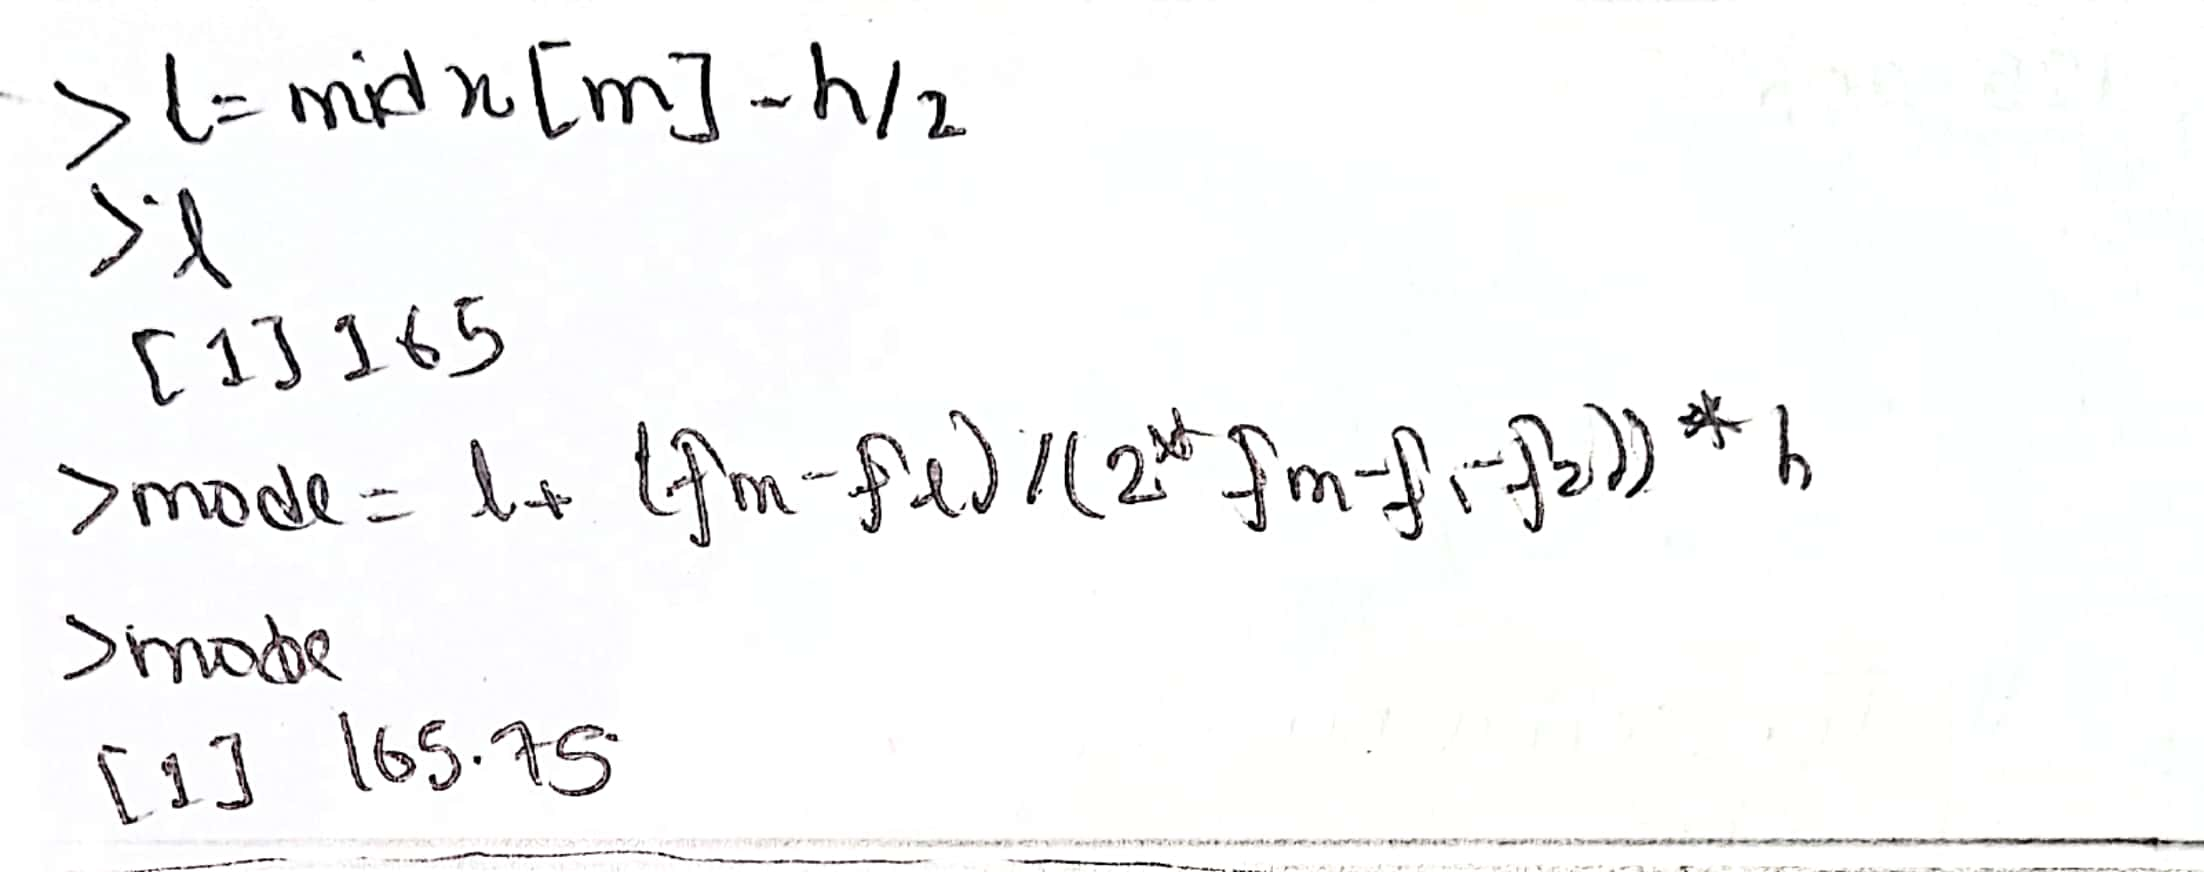 > l = midx[m] - h/2
> l
[1] 165
> mode = l + (fm - fl) / ((2 * fm - f1 - f2)) * h
> mode
[1] 165.75